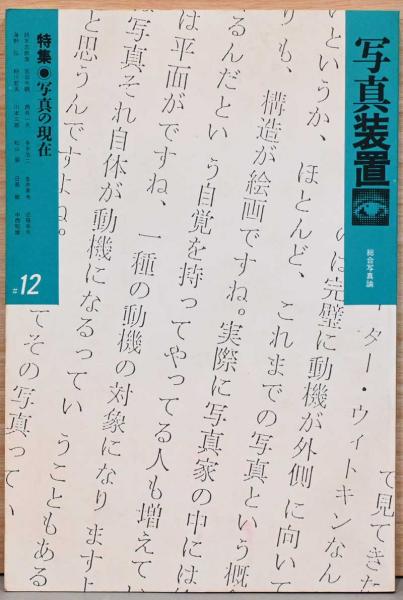 写真装置
総合写真論
て見てきた
ーター・ウィトキンなん
いは完璧に動機が外側に向いて
いというか、ほとんど、これまでの写真という概
りも、構造が絵画ですね。実際に写真家の中には
るんだという自覚を持ってやってる人も増えてい
は平面がですね、一種の動機の対象になりますよ
は写真それ自体が動機になるっていうこともある
と思うんですよね。
てその写真ってい
特集●写真の現在
#12